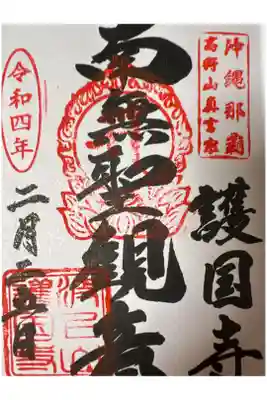 沖縄那覇
高野山真言宗
護国寺
南無聖観音
令和四年
二月